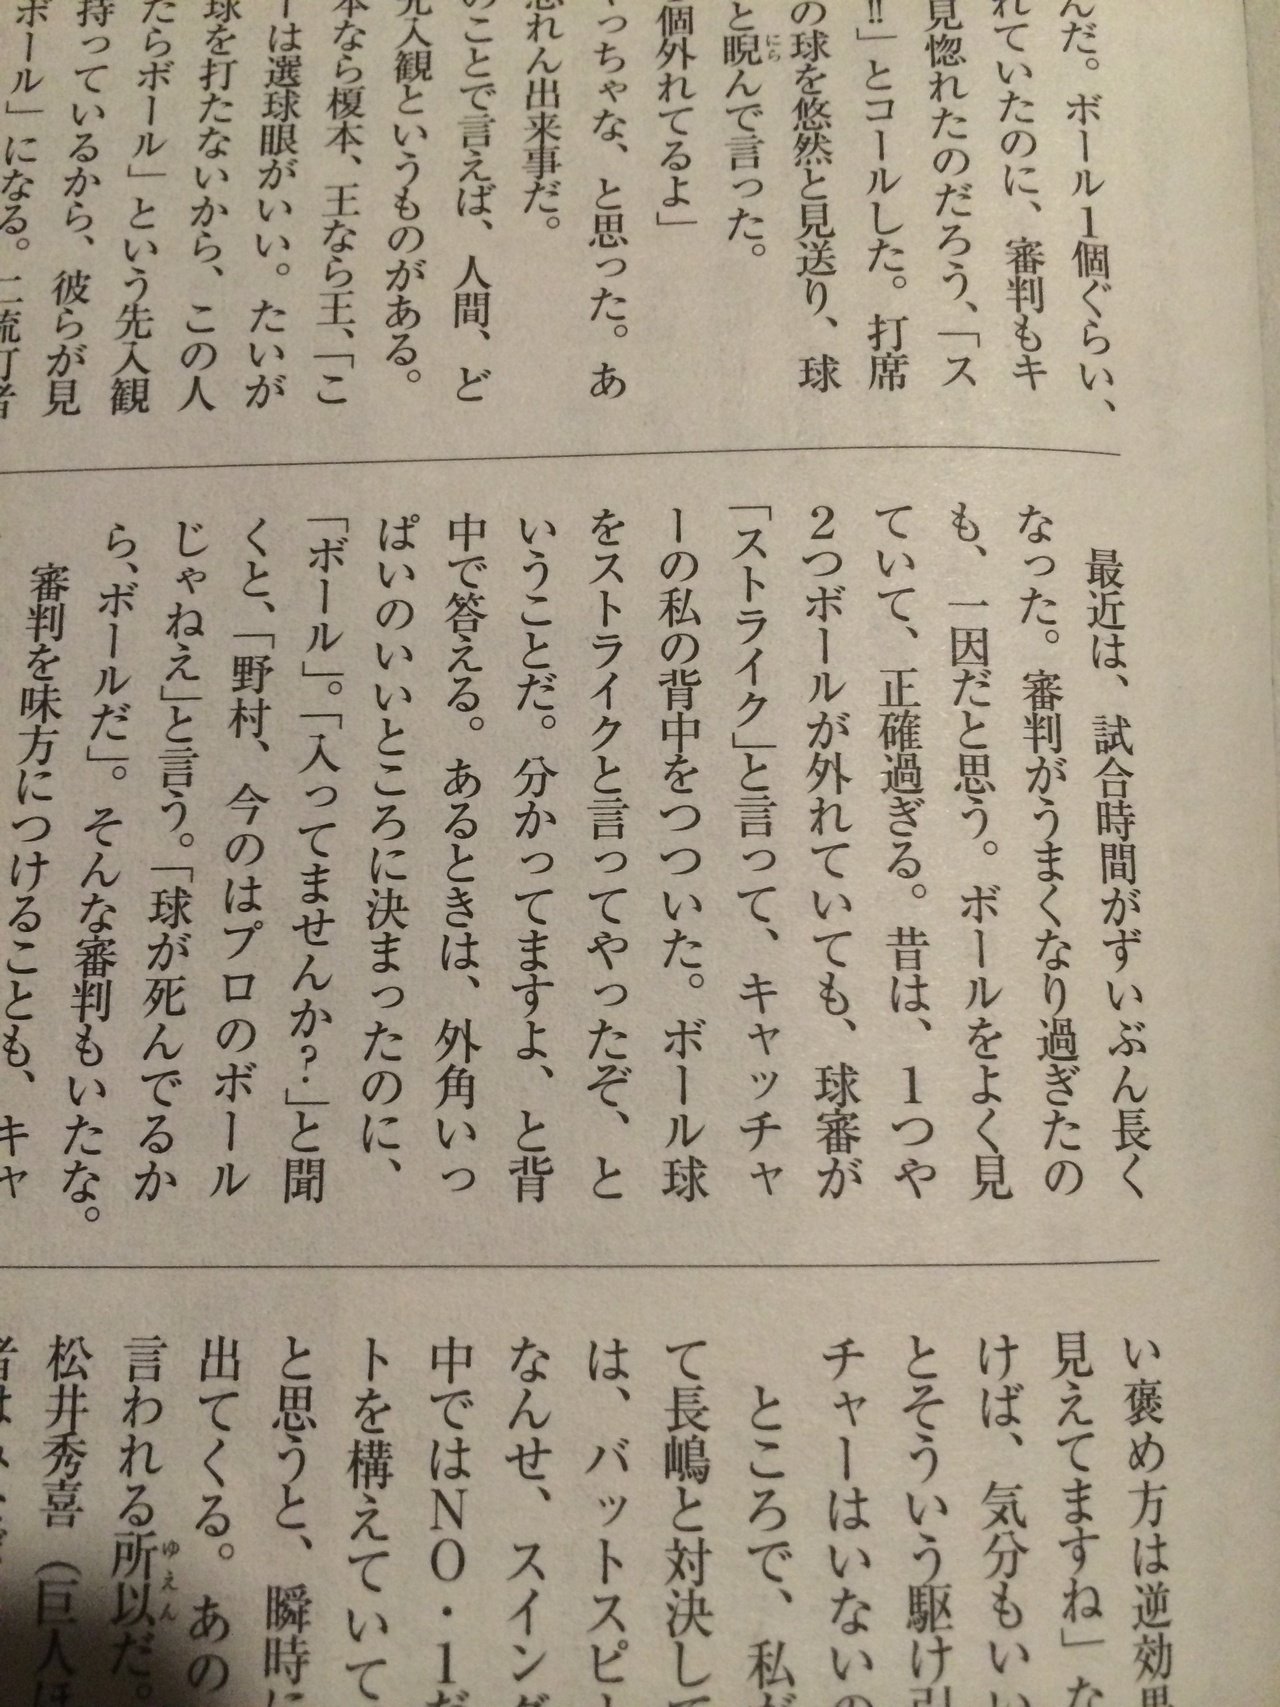 んだ。ボール1個ぐらい、
れていたのに、審判もキ
見惚れたのだろう、「ス
!!」とコールした。打席
の球を悠然と見送り、球
と睨んで言った。
にら
個外れてるよ」
っちゃな、と思った。あ
忘れん出来事だ。
のことで言えば、人間、ど
先入観というものがある。
本なら榎本、王なら王、「こ
ーは選球眼がいい。たいが
球を打たないから、この人
たらボール」という先入観
持っているから、彼らが見
ボール」になる。二流打者
最近は、試合時間がずいぶん長く
なった。審判がうまくなり過ぎたの
も、一因だと思う。ボールをよく見
ていて、正確過ぎる。昔は、1つや
2つボールが外れていても、球審が
「ストライク」と言って、キャッチャ
ーの私の背中をつついた。ボール球
をストライクと言ってやったぞ、と
いうことだ。分かってますよ、と背
中で答える。あるときは、外角いっ
ぱいのいいところに決まったのに、
「ボール」。「入ってませんか?」と聞
くと、「野村、今のはプロのボール
じゃねえ」と言う。「球が死んでるか
ら、ボールだ」。そんな審判もいたな。
審判を味方につけることも、キャ
い褒め方は逆効果
見えてますね」な
けば、気分もいい
とそういう駆け引
チャーはいないの
ところで、私が
て長嶋と対決して
は、バットスピー
なんせ、スイング
中ではNO・1だ
トを構えていて
と思うと、瞬時に
出てくる。あの
言われる所以だ。
ゆえん
松井秀喜(巨人ほ